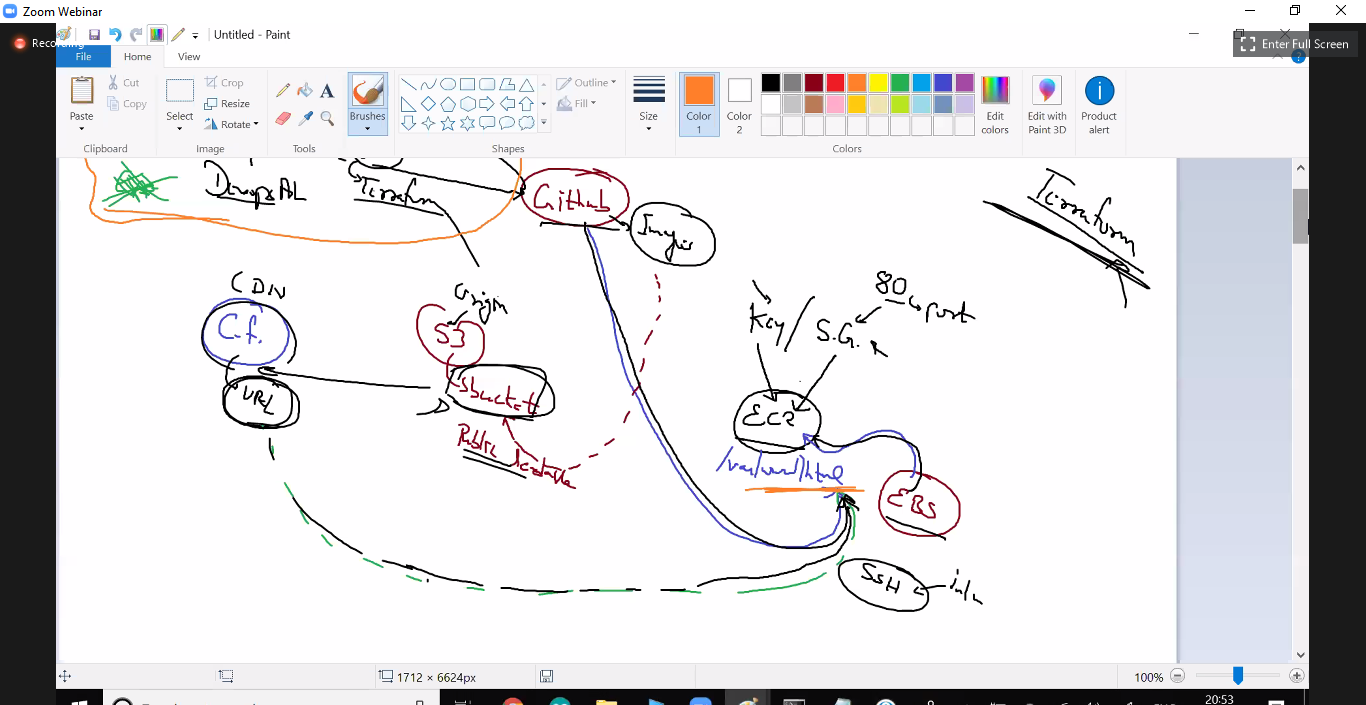 Zoom Webinar
Recording
Untitled - Paint
Enter Full Screen
File
Home
View
Paste
Cut
Copy
Clipboard
Select
Crop
Resize
Rotate
Image
Tools
Brushes
Shapes
Outline
Fill
Size
Color 1
Color 2
Colors
Edit colors
Edit with Paint 3D
Product alert
Terraform
Github
Images
Terraform
CDN
C.f.
URL
Origin
S3
80
port
Key / S.G.
EC2
Public
/var/www/html
EBS
SSH
1712 × 6624px
100%
20:53